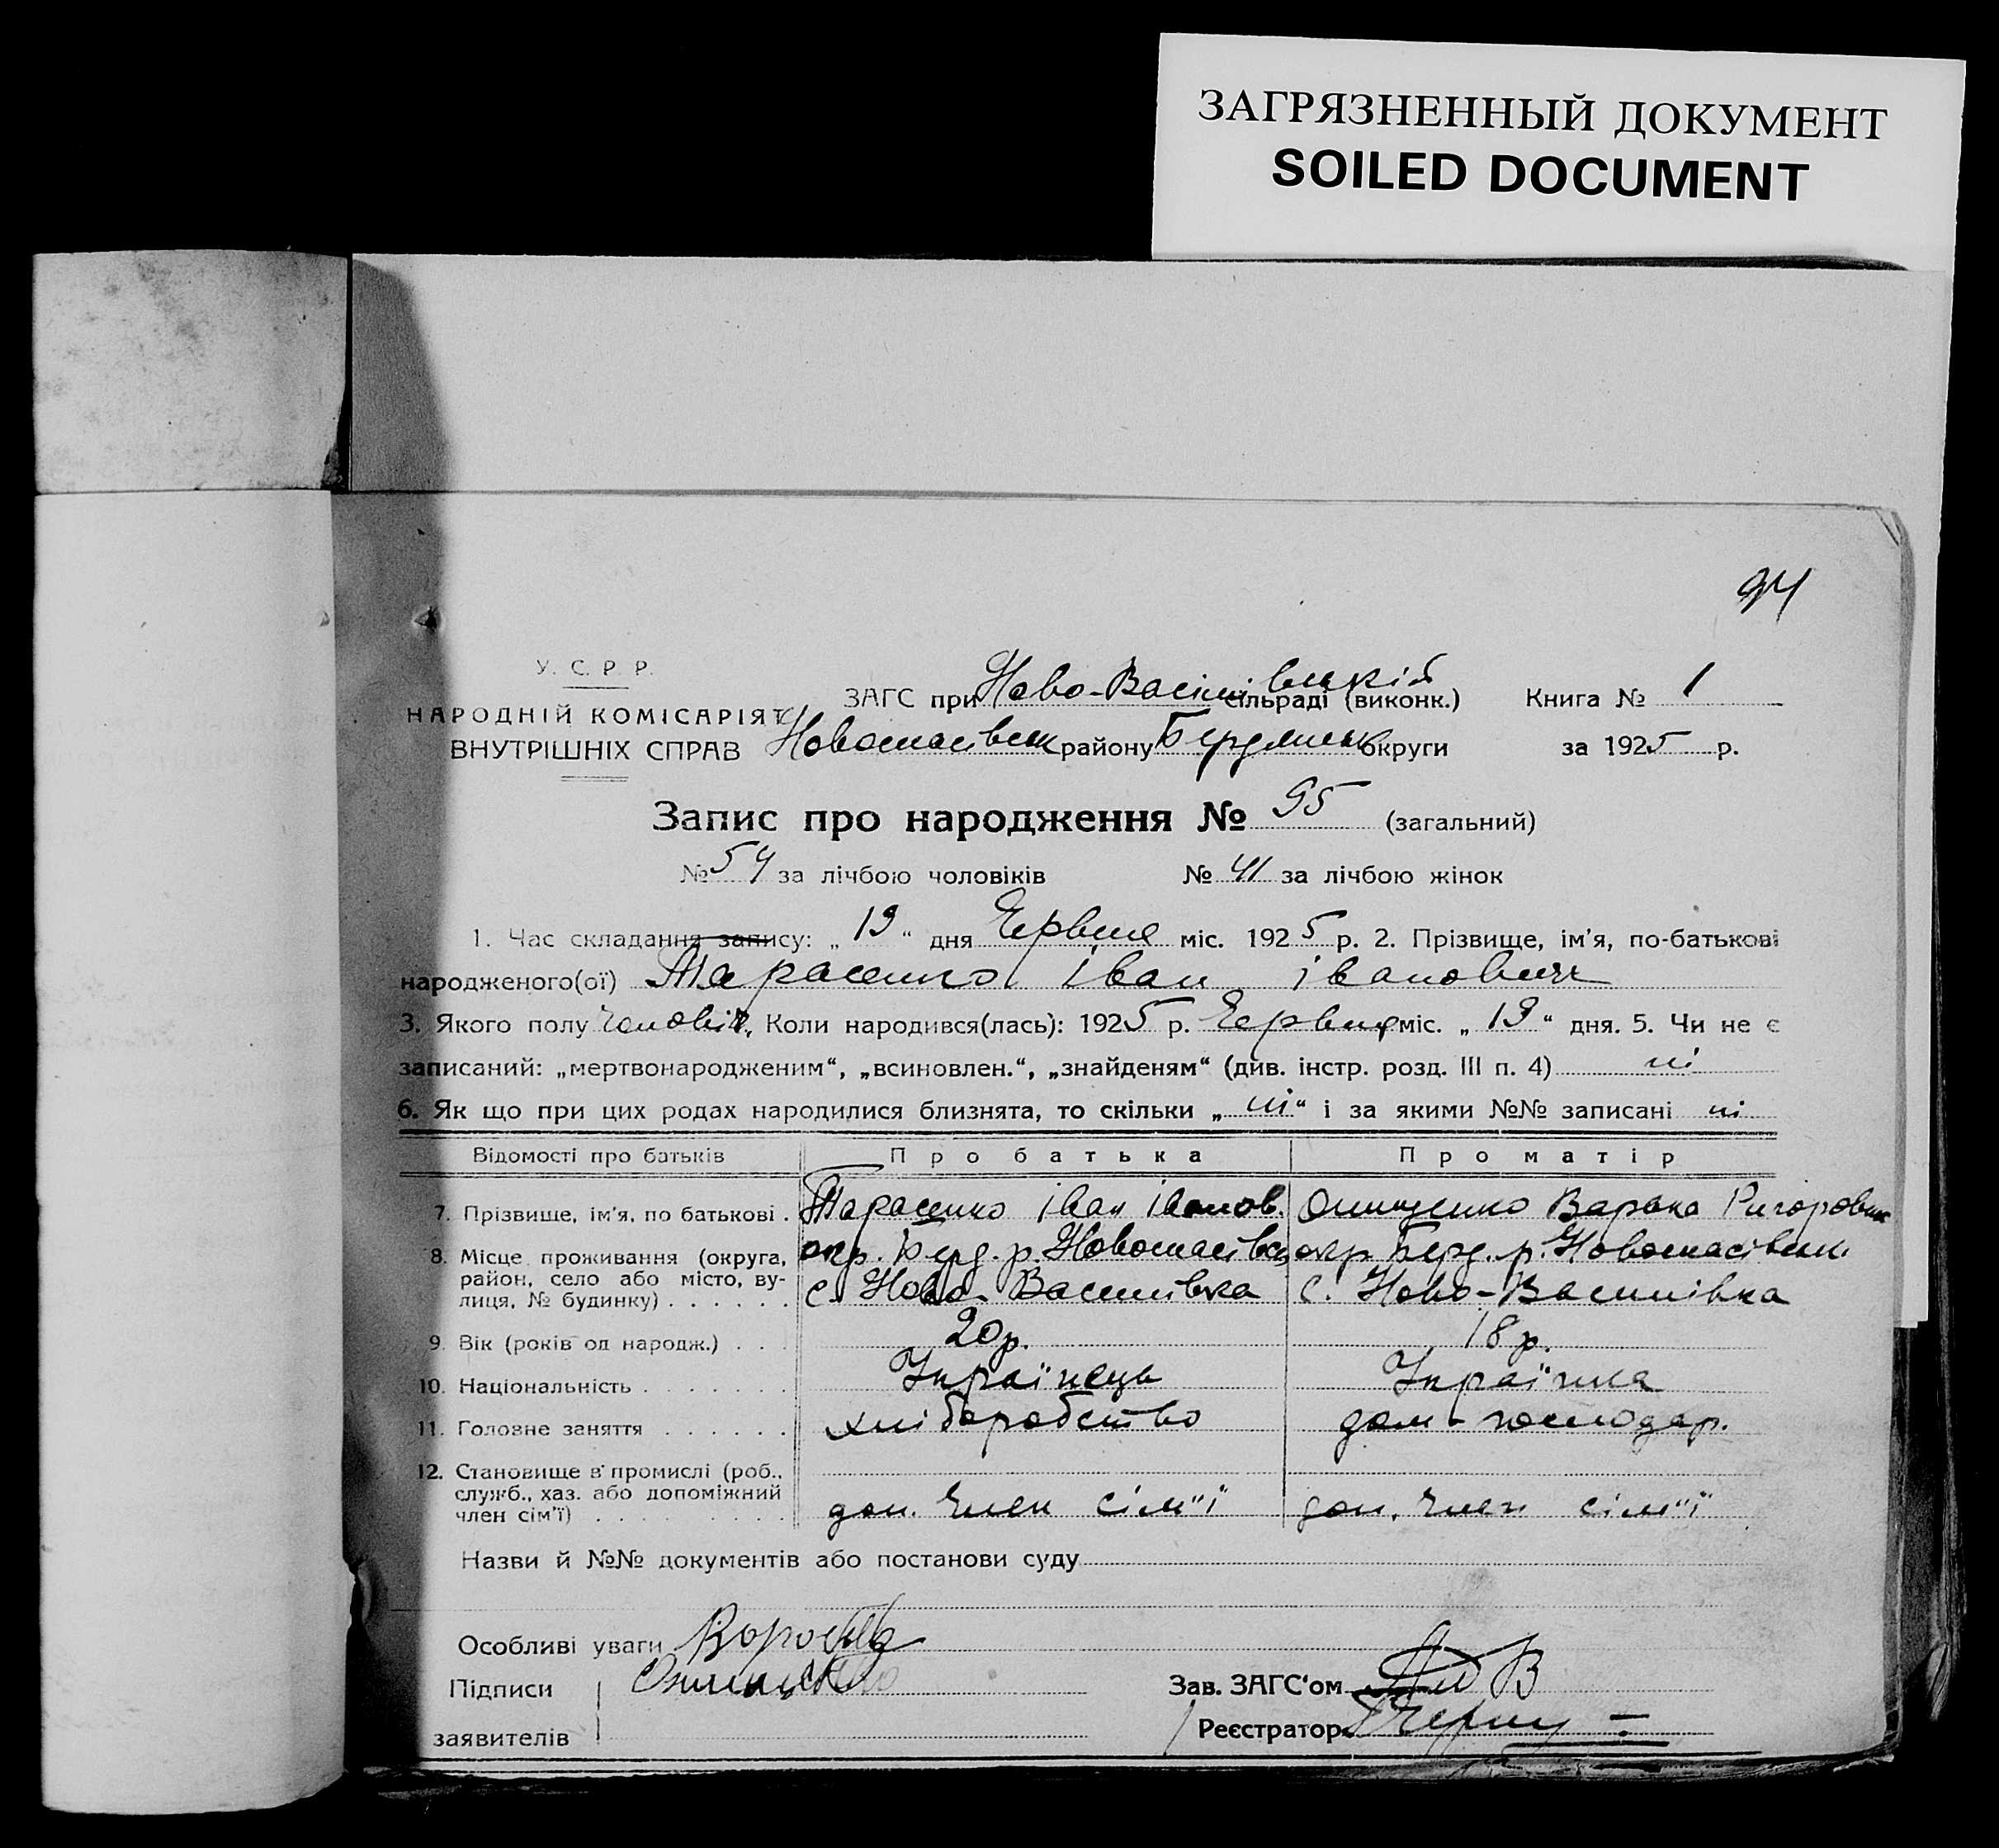 ЗАГРЯЗНЕННЫЙ ДОКУМЕНТ
SOILED DOCUMENT
94
У. С. Р. Р.
НАРОДНІЙ КОМІСАРІЯТ
ВНУТРІШНІХ СПРАВ
ЗАГС при Ново-Васілівській сільраді (виконк.) Книга № 1
Новоспасівськ району Бердянськ округи за 1925 р.
Запис про народження № 95 (загальний)
№ 54 за лічбою чоловіків № 41 за лічбою жінок
1. Час складання запису: „ 19 “ дня Червня міс. 1925 р. 2. Прізвище, ім’я, по-батькові
народженого(ої) Тарасенко іван іванович
3. Якого полу чоловіч, Коли народився(лась): 1925 р. Червня міс. „ 19 “ дня. 5. Чи не є
записаний: „мертвонародженим“, „всиновлен.“, „знайденям“ (див. інстр. розд. III п. 4) ні
6. Як що при цих родах народилися близнята, то скільки „ ні “ і за якими №№ записані ні
Відомості про батьків Про батька Про матір
7. Прізвище, ім’я, по батькові . Тарасенко іван іванов. Онищенко Варька Ригоровн
8. Місце проживання (округа, район, село або місто, вулиця, № будинку) . . . . . . окр. Берд. р. Новоспасівськ с. Ново-Василівка окр. Берд. р. Новоспасівськ. с. Ново-Василівка
9. Вік (років од народж.) . . . 20р. 18р.
10. Національність . . . . . . . Українець Українка
11. Головне заняття . . . . . . хліборобство дом-господар.
12. Становище в промислі (роб., служб., хаз. або допоміжний член сім’ї) . . . . . . . . доп. член сім"ї доп. член сім"ї
Назви й №№ документів або постанови суду
Особливі уваги
Підписи
заявителів
Зав. ЗАГС‘ом
Реєстратор